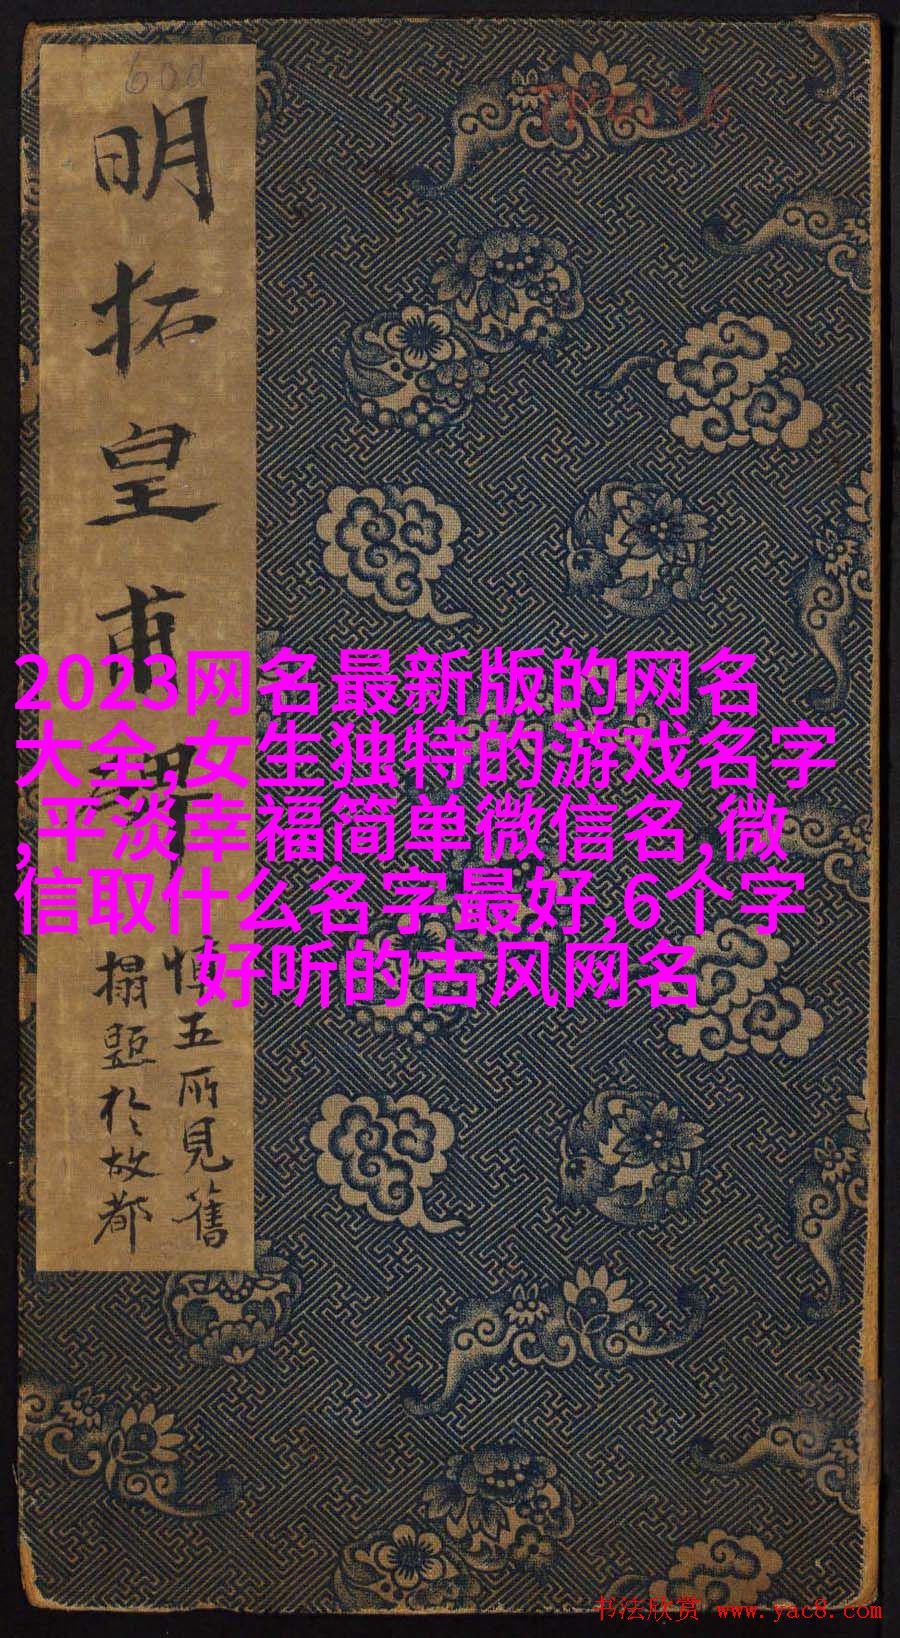 600
明拓皇甫碑
悼五所見舊
搨題於故都
2023网名最新版的网名
大全,女生独特的游戏名字
,平淡幸福简单微信名,微
信取什么名字最好,6个字
好听的古风网名
书法欣赏 www.yac8.com